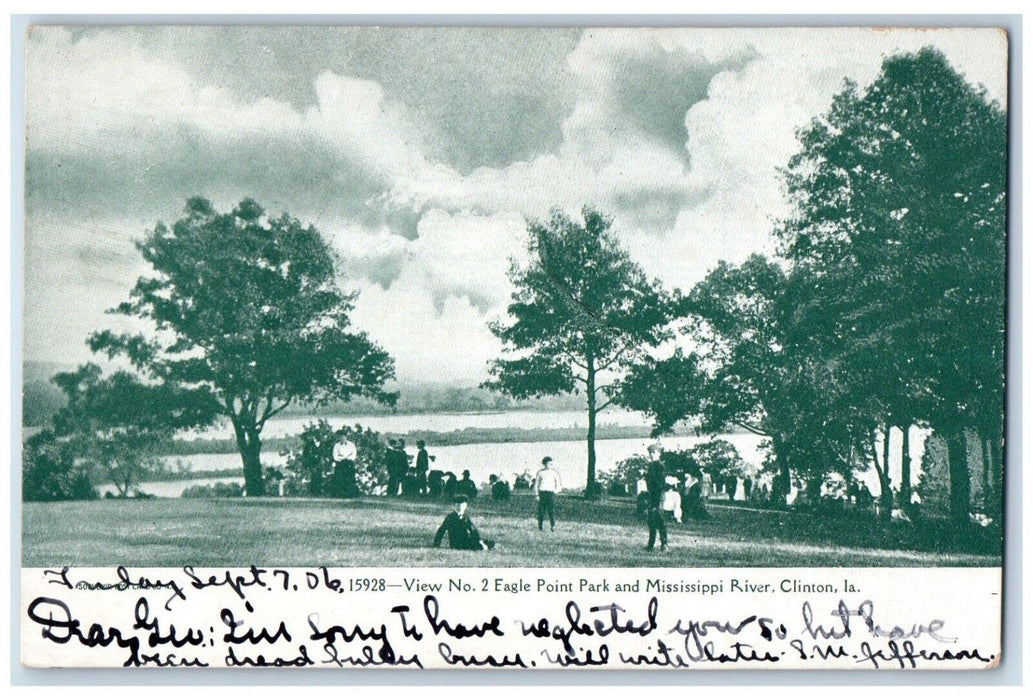 Friday Sept. 7. 06, 15928—View No. 2 Eagle Point Park and Mississippi River, Clinton, Ia.
Dear Geo: I'm sorry to have neglected you so but have
been dreadfully busy. Will write later. S.M. Jefferson.